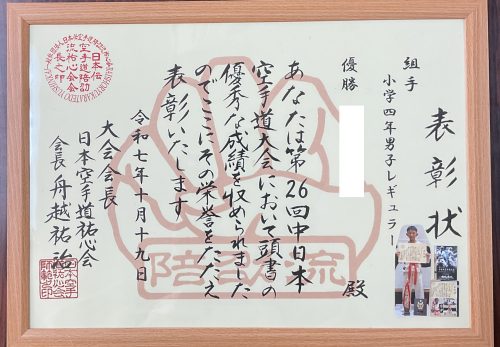 表彰状
組手
小学四年男子レギュラー
優勝
殿
あなたは第26回中日本
空手道大会において頭書の
優秀な成績を収められました
のでここにその栄誉をたたえ
表彰いたします
令和七年十月十九日
大会会長
日本空手道祐心会
会長 舟越祐治